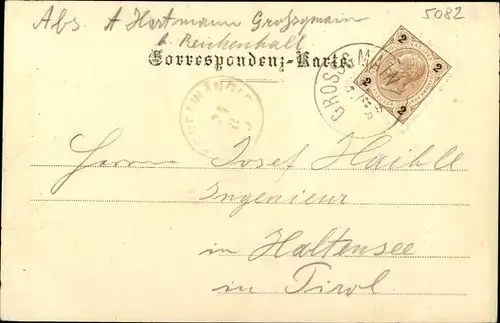 Abs. A Hartmann Grossgmain
b. Reichenhall
5082
Correspondenz-Karte
GROSSGMAIN
2 2 2 2
Herrn Josef Haible
Ingenieur
in Haltensee
in Tirol